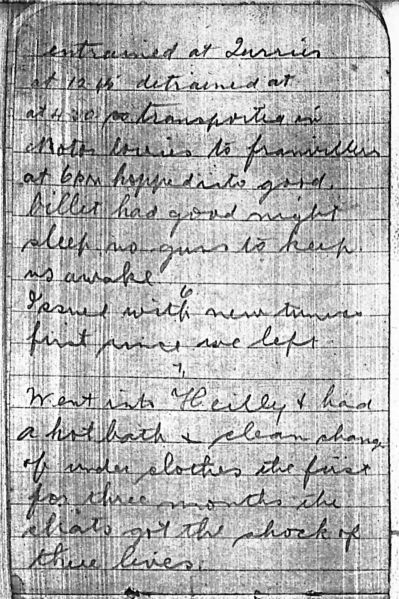 entrained at Querries
at 12 pm detrained at
at 4.30 pm transported in
Motor lorries to franvillers
at 6 pm hopped into good
Billet had good night
sleep no guns to keep
us awake
6
Issued with new tunics
first since we left
7
Went into Heilly & had
a hot bath & clean change
of under clothes the first
for three months the
chats got the shock of
thee lives.